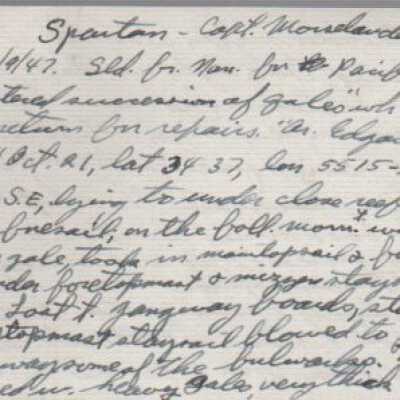 Spartan - Capt. Morslande
/9/47. Sld. fr. Nan. for Pacif
tered succession of gales" wh
return for repairs. "Ar. Edgar
Oct. 21, lat 34 37, lon 5515-
S.E, lying to under close reef
foresail, on the foll. morn't w
gale took in maintopsail &
der foretopmast & mizzen stays
Lost t. gangway boards, st
topmast staysail blowed to
way some of the bulwarks.
ed w. heavy gale, very thick